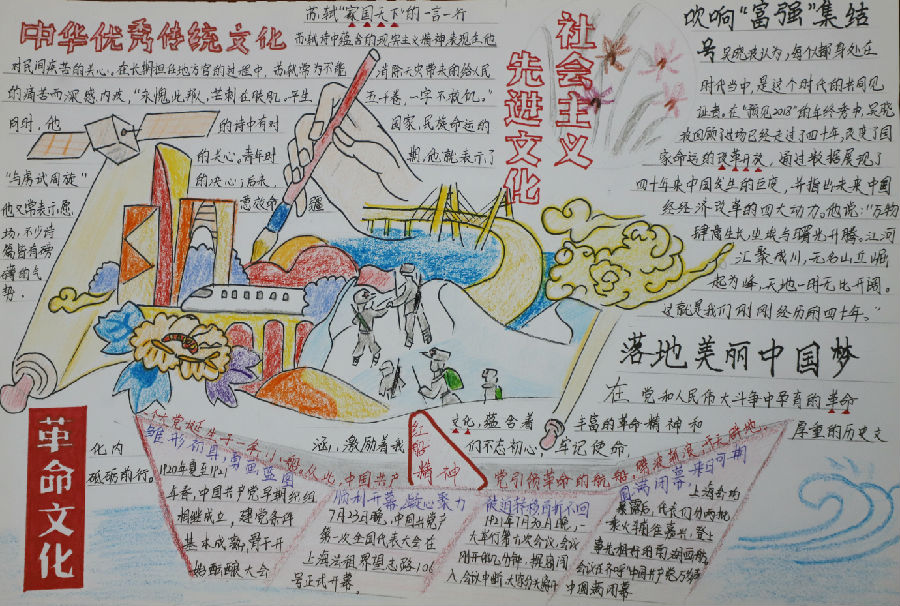 中华优秀传统文化
苏轼“家国天下”的一言一行
苏轼诗中蕴含的现实主义精神表现在他
对民间疾苦的关心，在长期担任地方官的过程中，苏轼常为不能
消除天灾带来的给人民
的痛苦而深感内疚，“永愧此邦人，芒刺在肤肌，平生
五千卷，一字不救饥。”
同时，他
的诗中有对
国家、民族命运的
的关心，青年时
期，他就表示了
“与虏试周旋”
的决心；后来，
他又常表示愿
意效命
疆
场，不少诗
篇皆有磅
礴的气
势。
社会主义
先进文化
吹响“富强”集结
号 吴晓波认为，每个都身处在
时代当中，是这个时代的共同见
证者。在“预见2018”的年终秀中，吴晓
波回顾了这场已经走过了四十年，改变了国
家命运的改革开放，通过数据展现了
四十年来中国发生的巨变，并指出未来中国
经济改革的四大动力。他说：“万物
肆意生长，尘埃与曙光升腾。江河
汇聚成川，无名山丘崛
起为峰，天地一时无比开阔。
这就是我们刚刚经历的四十年。”
落地美丽中国梦
在 党和人民伟大斗争中孕育的革命
文化，蕴含着
丰富的革命精神和
厚重的历史文
化内
涵，激励着我
们不忘初心，牢记使命，
砥砺前行。
革命文化
红船精神
党诞生于一条小船，从此，中国共产
党引领革命的航船，劈波斩浪，开天辟地。
雏形初具，勇画蓝图
1920年夏至1921
年春，中国共产党早期组织
相继成立，建党条件
基本成熟，要于开
始酝酿大会
顺利开幕，凝心聚力
7月23日晚，中国共产党
第一次全国代表大会在
上海法租界望志路106
号正式开幕。
被迫转移
1921年7月30日晚，一
大举行第六次会议，会议
刚开始几分钟
会议中断
圆满闭幕，未来可期
上海
暴露后，代表们分两批
乘火车前往嘉兴，登上
会议在齐呼“中国共产党万岁”声
中圆满闭幕